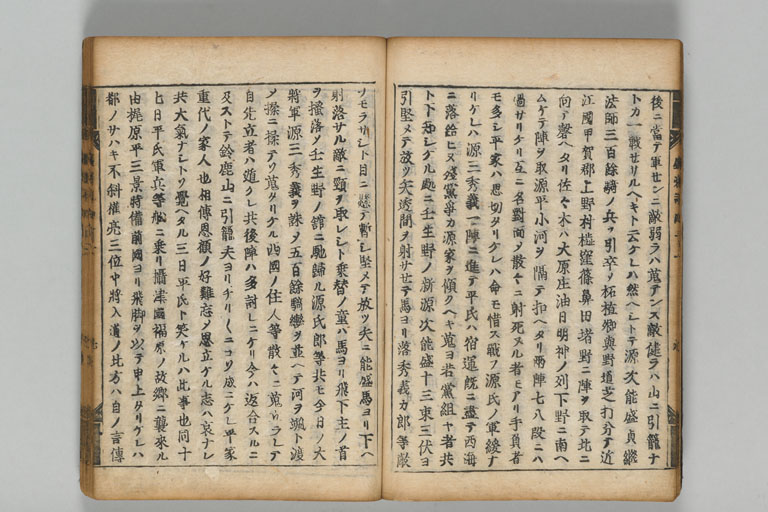 後ニ當テ軍セシニ敵弱ラハ蒐テンス敵健ラハ山ニ引籠ナ
トカ一戰セサリルヘキト云ケレハ然ヘシトテ源次能盛貞繼
法師三百餘騎ノ兵ヲ引卒シ柘植郷與野道芝打分テ近
江國甲賀郡上野村樾窪篠鼻田堵野ニ陣ヲ取テ北ニ
向テ磬ヘタリ佐々木ハ大原庄油日明神ノ列下野ニ南ヘ
ムケテ陣ヲ取源平小河ヲ隔テ扣ヘタリ兩陣七八段ニハ
過サリケリ互ニ名對面メ散々ニ射死ヌル者モアリ手負者
モ多シ平家ハ思切タリケレハ命モ惜ス戰フ源氏ノ軍緩ナ
リケレハ源三秀義一陣ニ進テ平氏ハ宿運既ニ盡テ西海
ニ落給ヒヌ殘黨爭カ源家ヲ傾クヘキ蒐ヨ若黨組ヤ者共
ト下知シケル處ニ壬生野ノ新源次能盛十三束三伏ヨ
引堅メテ放ツ矢透間ヲ射サセテ馬ヨリ落秀義カ郎等敵
ソモラサシト目ニ懸テ暫シ堅メテ放ツ矢ニ能盛馬ヨリ下ヘ
射落サル敵ニ頸ヲ取レシト乗替ノ童ハ馬ヨリ飛下主ノ首
ヲ搔落ソ壬生野ノ館ニ馳歸ル源氏郎等共モ今日ノ大
將軍源三秀義ヲ誅メ五百餘騎轡ヲ並ヘテ河ヲ颯ト渡
メ揉ニ揉テソ蒐タリケル四國ノ住人等散々ニ蒐ラレテ
自先立者ハ遁クレ共後陣ハ多討レニケリ今ハ返合スルニ
及ストテ鈴鹿山ニ引籠夫ヨリチリ〳〵ニコソ成ニケレ平家
重代ノ家人也相傳恩顧ノ好難忘メ思立ケル志ハ哀ナレ
共大氣ナシトソ覺ヘタル三日平氏ト笑ケルハ此事也同十
七日平氏軍兵等船ニ乗リ攝津國福原ノ故郷ニ襲來ル
由梶原平三景時備前國ヨリ飛脚ヲ以テ申上タリケレハ
都ノサハキ不斜權亮三位中將入道ノ北方ハ自ノ言傳